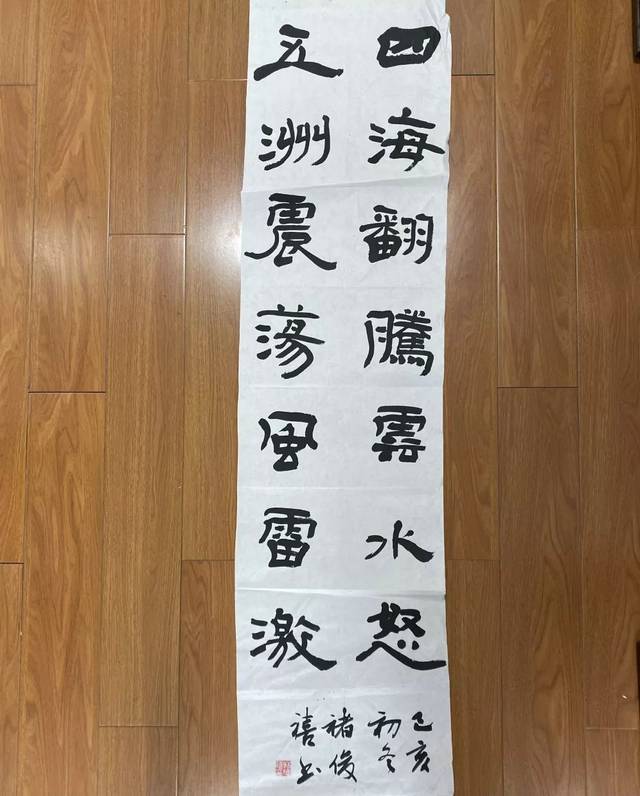 四海翻騰雲水怒
五洲震荡風雷激
己亥
初冬
褚俊
禧书